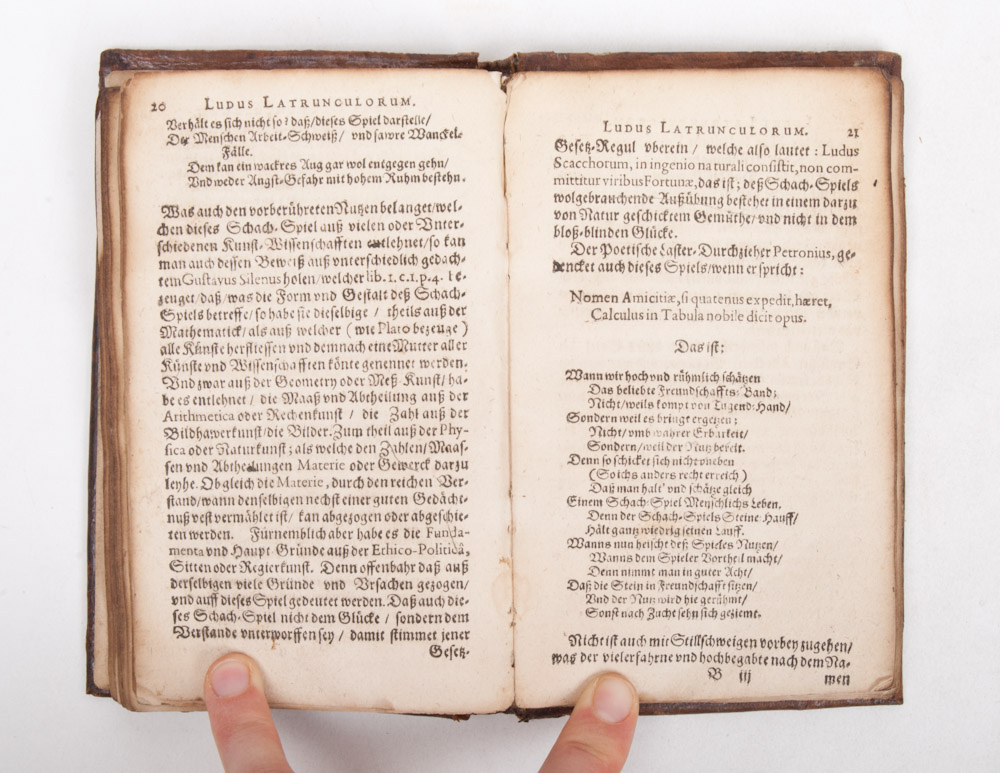 20 LUDUS LATRUNCULORUM.
Verhält es sich nicht so? daß/dieses Spiel darstelle/
Der Menschen Arbeit-Schweiß/ vnd sawre Wanckel-
Fälle.
Dem kan ein wackres Aug gar wol entgegen gehn/
Vnd weder Angst-Gefahr mit hohem Ruhm bestehn.
Was auch den vorberühreten Nutzen belanget/wel-
chen dieses Schach-Spiel auß vielen oder Vnter-
schiedenen Kunst-Wissenschafften entlehnet/so kan
man auch dessen Beweiß auß vnterschiedlich gedach-
tem Gustavus Silenus holen/welcher lib. 1. c. 1. p. 4. be-
zeuget/daß/was die Form vnd Gestalt deß Schach-
Spiels betreffe/so habe sie dieselbige / theils auß der
Mathematick/als auß welcher ( wie Plato bezeuge )
alle Künste herfliessen vnd demnach eine Mutter aller
Künste vnd Wissenschafften könte genennet werden.
Vnd zwar auß der Geometry oder Meß-Kunst/ ha-
be es entlehnet / die Maaß vnd Abtheilung auß der
Arithmetica oder Rechenkunst / die Zahl auß der
Bildhawerkunst/die Bilder. Zum theil auß der Phy-
sica oder Naturkunst; als welche den Zahlen/Maas-
sen vnd Abtheilungen Materie oder Gewerck darzu
leyhe. Ob gleich die Materie, durch den reichen Ver-
stand/wann denselbigen nechst einer guten Gedächt-
nuß vest vermählet ist/ kan abgezogen oder abgeschie-
ten werden. Fürnemblich aber habe es die Funda-
menta vnd Haupt-Gründe auß der Ethico-Politica,
Sitten oder Regierkunst. Denn offenbahr daß auß
derselbigen viele Gründe vnd Vrsachen gezogen/
vnd auff dieses Spiel gedeutet werden. Daß auch die-
ses Schach-Spiel nicht dem Glücke / sondern dem
Verstande vnterworffen sey / damit stimmet jener
Gesetz-
LUDUS LATRUNCULORUM. 21
Gesetz-Regul vberein / welche also lautet : Ludus
Scacchorum, in ingenio naturali consistit, non com-
mittitur viribus Fortunæ, das ist; deß Schach-Spiels
wolgebrauchende Außübung bestehet in einem darzu
von Natur geschicktem Gemüthe/ vnd nicht in dem
bloß-blinden Glücke.
Der Poetische Laster-Durchzieher Petronius, ge-
dencket auch dieses Spiels/wenn er spricht :
Nomen Amicitiæ, si quatenus expedit, hæret,
Calculus in Tabula nobile dicit opus.
Das ist:
Wann wir hoch vnd rühmlich schätzen
Das beliebte Freundschaffts-Band;
Nicht/weils kompt von Tugend-Hand/
Sondern weil es bringt ergetzen;
Nicht/vmb wahrer Erbarkeit/
Sondern/weil der Nutz bereit.
Denn so schicket sich nicht vneben
( So ichs anders recht erreich )
Daß man halt' vnd schätze gleich
Einem Schach-Spiel Menschlichs Leben.
Denn der Schach-Spiels Steine-Hauff/
Hält gantz wiedrig seinen Lauff.
Wanns nun heischt deß Spieles Nutzen/
Wanns dem Spieler Vortheil macht/
Denn nimmt man in guter Acht/
Daß die Stein in Freundschafft sitzen/
Vnd der Nutz wird hie gerühmt/
Sonst nach Zucht sehn sich geziemt.
Nicht ist auch mit Stillschweigen vorbey zugehen/
was der vielerfahrne vnd hochbegabte nach dem Na-
B iij men